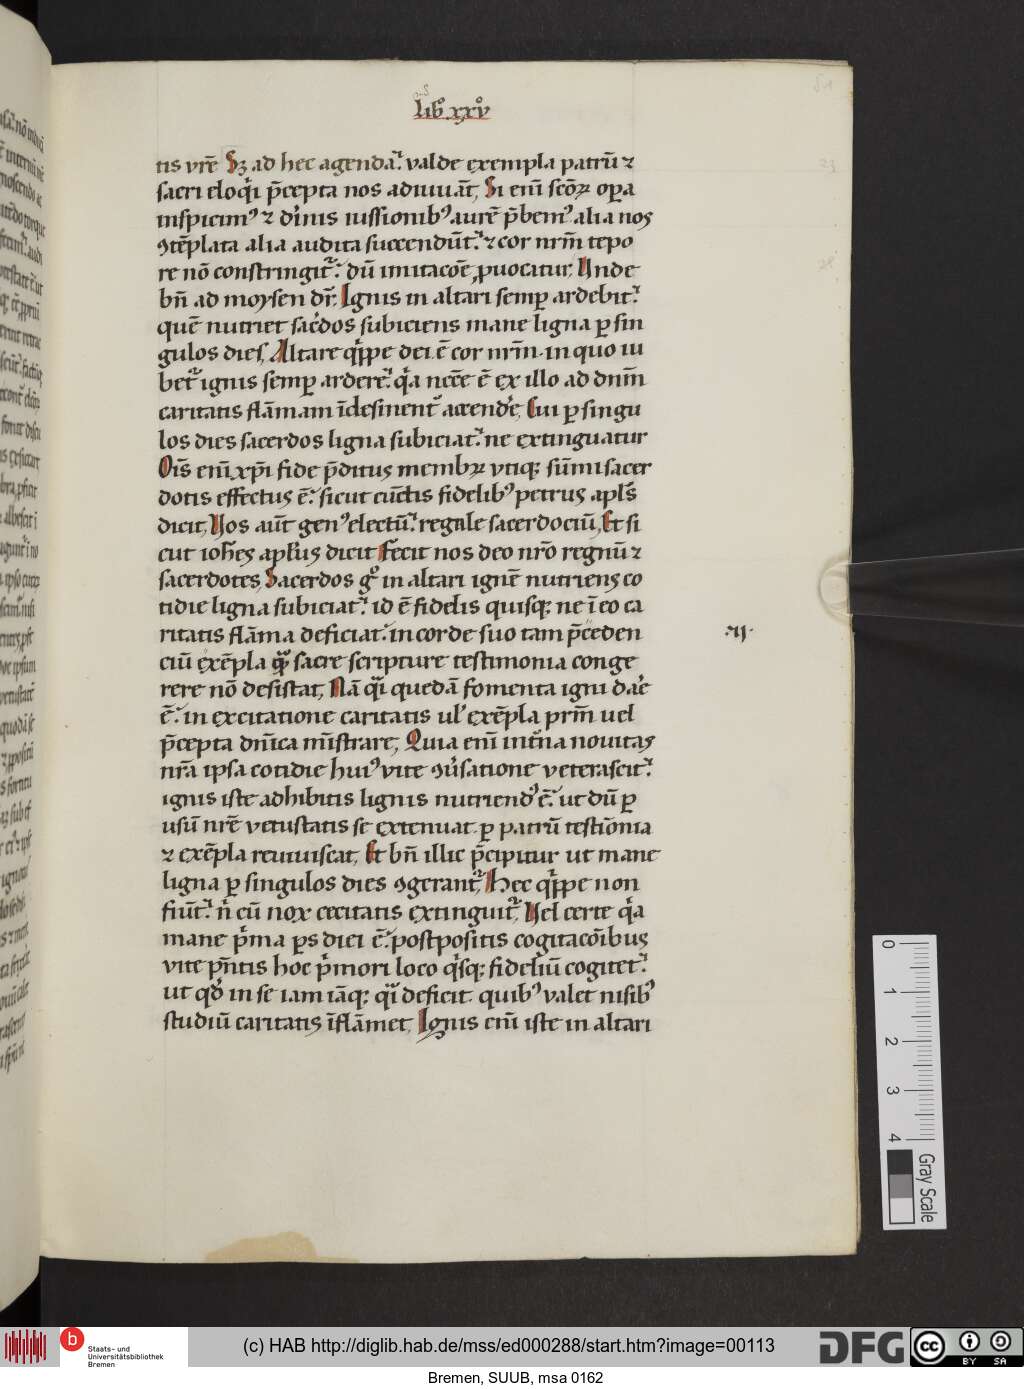 lib⁹. xxv⁹
tis vr̄e Sꝫ ad hec agenda᷑. valde exempla patrū ⁊
sacri eloq̇i p̄cepta nos adiuuāt, Si enī scōꝝ oꝑa
inspicim⁹ ⁊ di̇nis iussionib⁹ aurē p̄bem⁹ alia nos
ꝯtēplata alia audita succendūt. ⁊ cor nrm̄ tepo
re nō constringit᷑. dū imitacōe ꝓuocatur, Unde
bn̄ ad moysen dr̄. Ignis in altari semꝑ ardebit.
quē nutriet sac̓dos subiciens mane ligna ꝑ sin
gulos dies, Altare q̇ppe dei ē cor nrm̄. in quo iu
bet᷑ ignis semꝑ ardere. q̇a necēe ē ex illo ad dnm̄
caritatis flāmam īdesinent᷑ accend̓e, Cui ꝑ singu
los dies sacerdos ligna subiciat. ne extinguatur
Oīs enī xp̄i fide p̄ditus membꝝ vtiqꝫ sūmi sacer
dotis effectus ē. sicut cūctis fidelib⁹ petrus apl̄s
dicit, Vos aūt gen⁹ electū. regale sacerdociū, Et si
cut ioh̄es apl̄us dicit Fecit nos deo nr̄o regnū ⁊
sacerdotes, Sacerdos gͦ in altari ignē nutriens co
tidie ligna subiciat. id ē fidelis quisqꝫ ne ī eo ca
ritatis flāma deficiat. in corde suo tam p̄ceden
ciū exēpla q̄ꝫ sacre scripture testimonia conge
rere nō desistat, Nā q̇i quedā fomenta igni dar̓e
ē. in excitatione caritatis ul̓ exēpla prm̄ uel
p̄cepta dnīca mīstrare, Quia enī int̓na nouitas
nr̄a ipsa cotidie hui⁹ vite ꝯu̓satione veterascit.
ignis iste adhibitis lignis nutriend⁹ ē. ut dū ꝑ
usū nr̄e vetustatis se extenuat. ꝑ patrū testīonia
⁊ exēpla reuiuiscat, Et bn̄ illic p̄cipitur ut mane
ligna ꝑ singulos dies ꝯgerant᷑, Hec q̇ppe non
fiūt. n̄ cū nox cecitatis extinguit᷑, Vel certe q̇a
mane p̄ma pars diei ē. postpositis cogitacōibus
vite p̄ntis hoc p̄mori loco q̇sqꝫ fideliū cogitet.
ut qd̓ in se iam iāqꝫ q̇i deficit. quib⁹ valet nisib⁹
studiū caritatis īflāmet, Ignis enī iste in altari
0 1 2 3 4
Gray Scale
b
Staats- und
Universitätsbibliothek
Bremen
(c) HAB http://diglib.hab.de/mss/ed000288/start.htm?image=00113
DFG
cc
BY SA
Bremen, SUUB, msa 0162